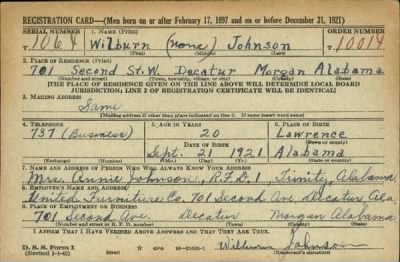 REGISTRATION CARD—(Men born on or after February 17, 1897 and on or before December 31, 1921)
SERIAL NUMBER 1. NAME (Print) ORDER NUMBER
T 1064 Wilburn (none) Johnson 10014
(First) (Middle) (Last)
2. PLACE OF RESIDENCE (Print)
701 Second St. W. Decatur Morgan Alabama
(Number and street) (Town, township, village, or city) (County) (State)
[THE PLACE OF RESIDENCE GIVEN ON THE LINE ABOVE WILL DETERMINE LOCAL BOARD
JURISDICTION; LINE 2 OF REGISTRATION CERTIFICATE WILL BE IDENTICAL]
3. MAILING ADDRESS
Same
[Mailing address if other than place indicated on line 2. If same insert word same]
4. TELEPHONE 5. AGE IN YEARS 6. PLACE OF BIRTH
737 (Business) 20 Lawrence
DATE OF BIRTH (Town or county)
Sept. 21 1921 Alabama
(Exchange) (Number) (Mo.) (Day) (Yr.) (State or country)
7. NAME AND ADDRESS OF PERSON WHO WILL ALWAYS KNOW YOUR ADDRESS
Mrs. Annie Johnson, R.F.D. 1 Trinity, Alabama
8. EMPLOYER'S NAME AND ADDRESS
United Furniture Co. 701 Second Ave. Decatur, Ala.
9. PLACE OF EMPLOYMENT OR BUSINESS
701 Second Ave. Decatur Morgan Alabama
(Number and street or R. F. D. number) (Town) (County) (State)
I AFFIRM THAT I HAVE VERIFIED ABOVE ANSWERS AND THAT THEY ARE TRUE.
D. S. S. Form 1
(Revised 1-1-42) (over) Wilburn Johnson